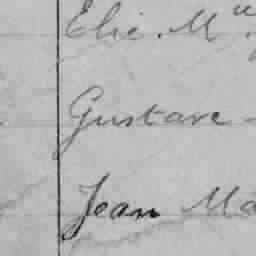 Elie. M
Gustave -
Jean Ma